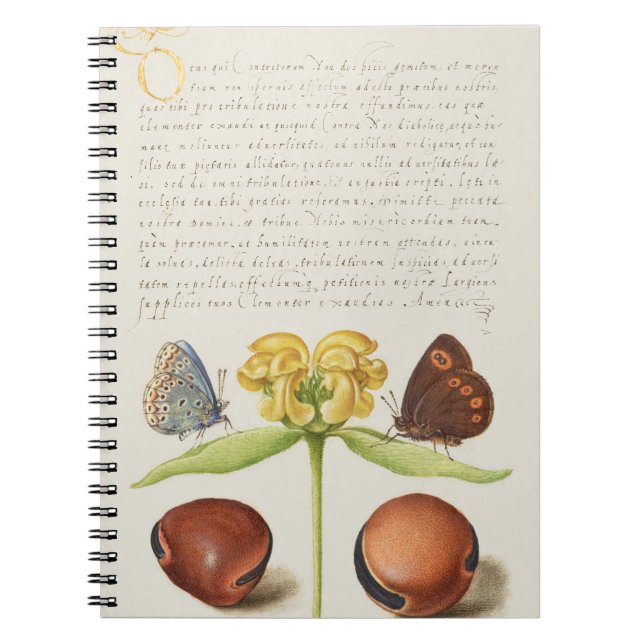 Deus qui Contritorum Non despicis gemitum, et meren
tium non spernis affectum adesto præcibus nostris,
quas tibi pro tribulatione nostra effundimus, eas quæ
clementer exaudi ut quicquid Contra Nos diabolicæ, atque hu-
manæ moliuntur aduersitates ad nihilum redigatur, et con
silio tuæ pietatis allidatur, quatenus nullis aduersitatibus læ
si, sed de omni tribulatione, Et angustia erepti, læti in
ecclesia tua tibi gratias referamus, Dimitte peccata
nostra Domine, et tribue Nobis misericordiam tuam,
quàm præcamur, et humilitatem nostram attende, uincu
la solue, delicta dele, tribulationem inspice, aduersi
tatem repelle, effectumq petitionis nostræ Largiens
supplices tuos Clementer exaudias. Amen